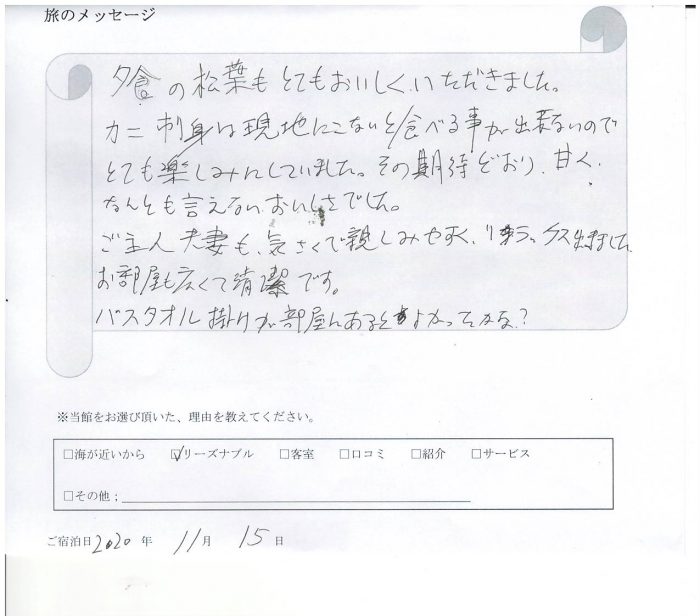 旅のメッセージ
夕食の松葉もとてもおいしくいただきました。
カニ刺身は現地にこないと食べる事が出来ないので
とても楽しみにしていました。その期待どおり、甘く、
なんとも言えないおいしさでした。
ご主人夫妻も、気さくで親しみやすく、リラックス出来ました
お部屋も広くて清潔です。
バスタオル掛けが部屋にあるとよかったかな?
※当館をお選び頂いた、理由を教えてください。
□海が近いから ☑リーズナブル □客室 □口コミ □紹介 □サービス
□その他；
ご宿泊日2020年 11月 15日